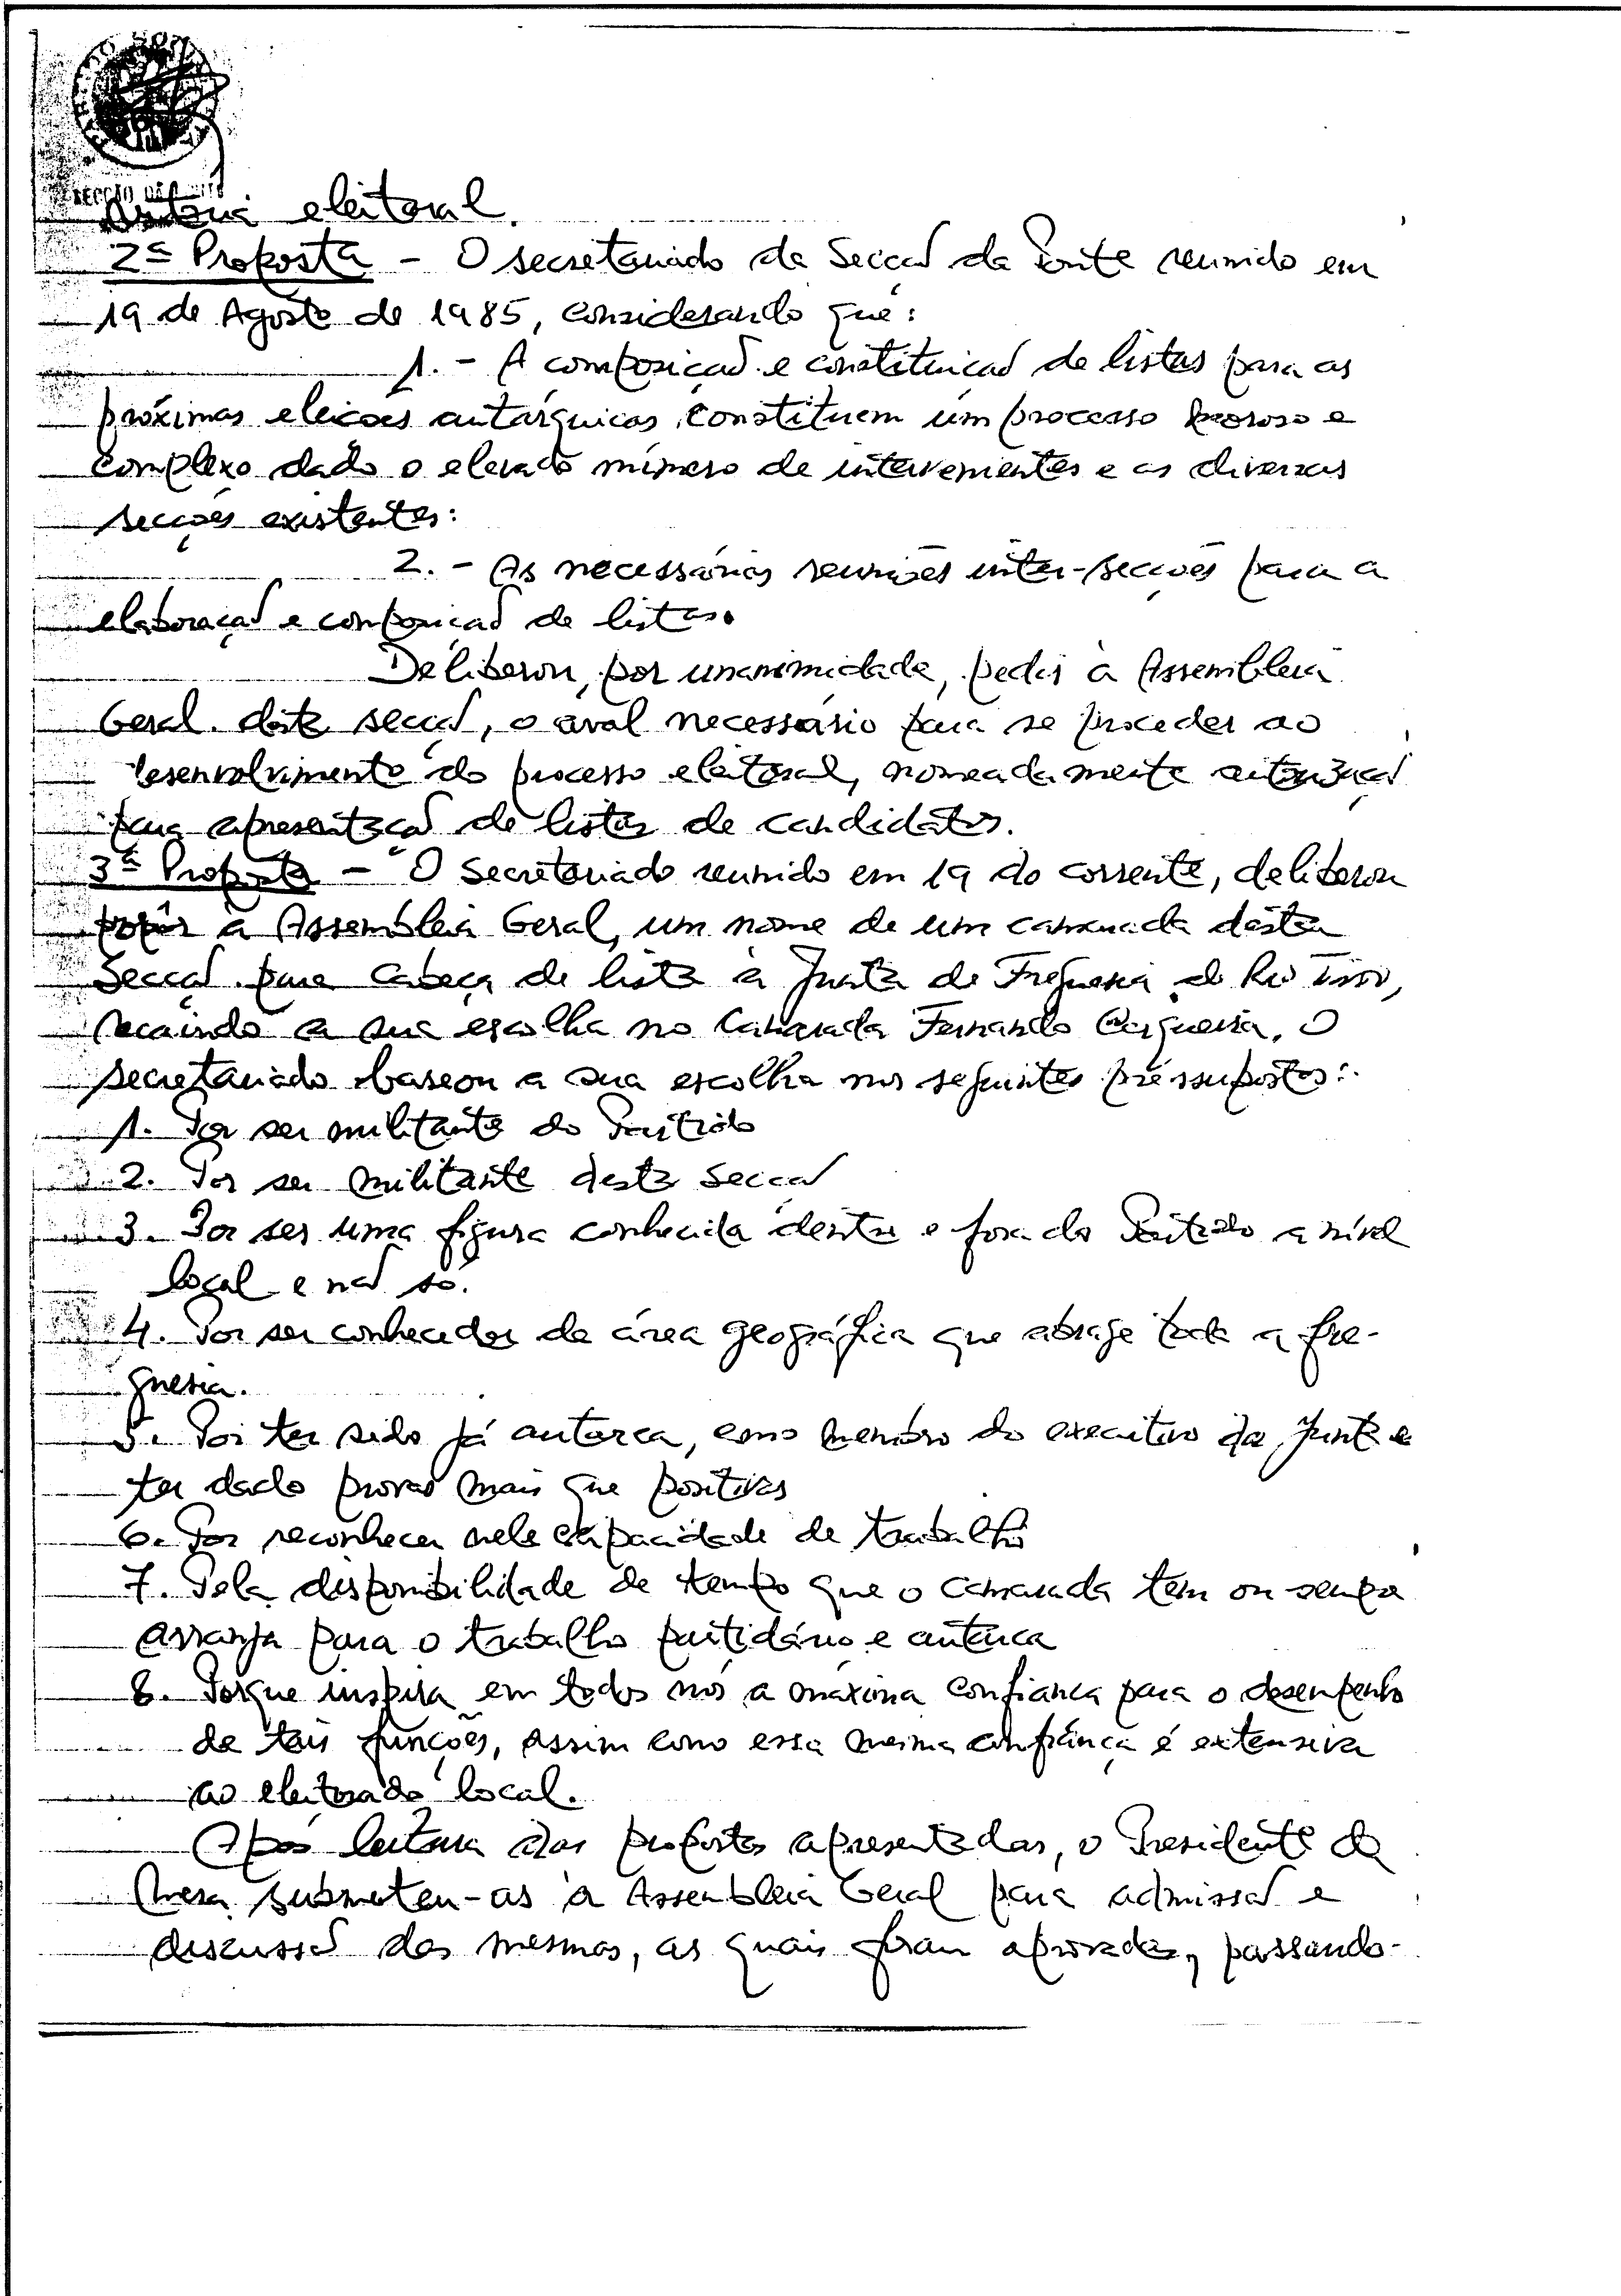 SECÇÃO DA PONTE
eleitoral.
2ª Proposta - O secretariado da Secção da Ponte reunido em
19 de Agosto de 1985, considerando que:
1. - A composição e constituição de listas para as
próximas eleições autárquicas, constituem um processo moroso e
complexo dado o elevado número de intervenientes e as diversas
secções existentes:
2. - As necessárias reuniões inter-secções para a
elaboração e composição de listas.
Deliberou, por unanimidade, pedir à Assembleia
Geral desta secção, o aval necessário para se proceder ao
desenvolvimento do processo eleitoral, nomeadamente autorização
para apresentação de listas de candidatos.
3ª Proposta - O Secretariado reunido em 19 do corrente, deliberou
propôr à Assembleia Geral, um nome de um camarada desta
Secção para cabeça de lista à Junta de Freguesia de Rio Tinto,
recaindo a sua escolha no Camarada Fernando Cerqueira. O
secretariado baseou a sua escolha nos seguintes préssupostos:
1. Por ser militante do Partido
2. Por ser militante desta Secção
3. Por ser uma figura conhecida dentro e fora do Partido a nível
local e não só.
4. Por ser conhecedor da área geográfica que abrage toda a fre-
guesia.
5. Por ter sido já autarca, como membro do executivo da Junta e
ter dado provas mais que positivas
6. Por reconhecer nele capacidade de trabalho
7. Pela disponibilidade de tempo que o camarada tem ou sempre
arranja para o trabalho partidário e autarca
8. Porque inspira em todos nós a máxima confiança para o desempenho
de tais funções, assim como essa mesma confiança é extensiva
ao eleitorado local.
Após leitura das propostas apresentadas, o Presidente da
Mesa submeteu-as à Assembleia Geral para admissão e
discussão das mesmas, as quais foram aprovadas, passando-